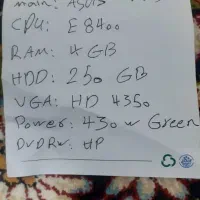 main: ASUS
CPU: E8400
RAM: 4 GB
HDD: 250 GB
VGA: HD 4350
Power: 430 w Green
DVDRW: HP